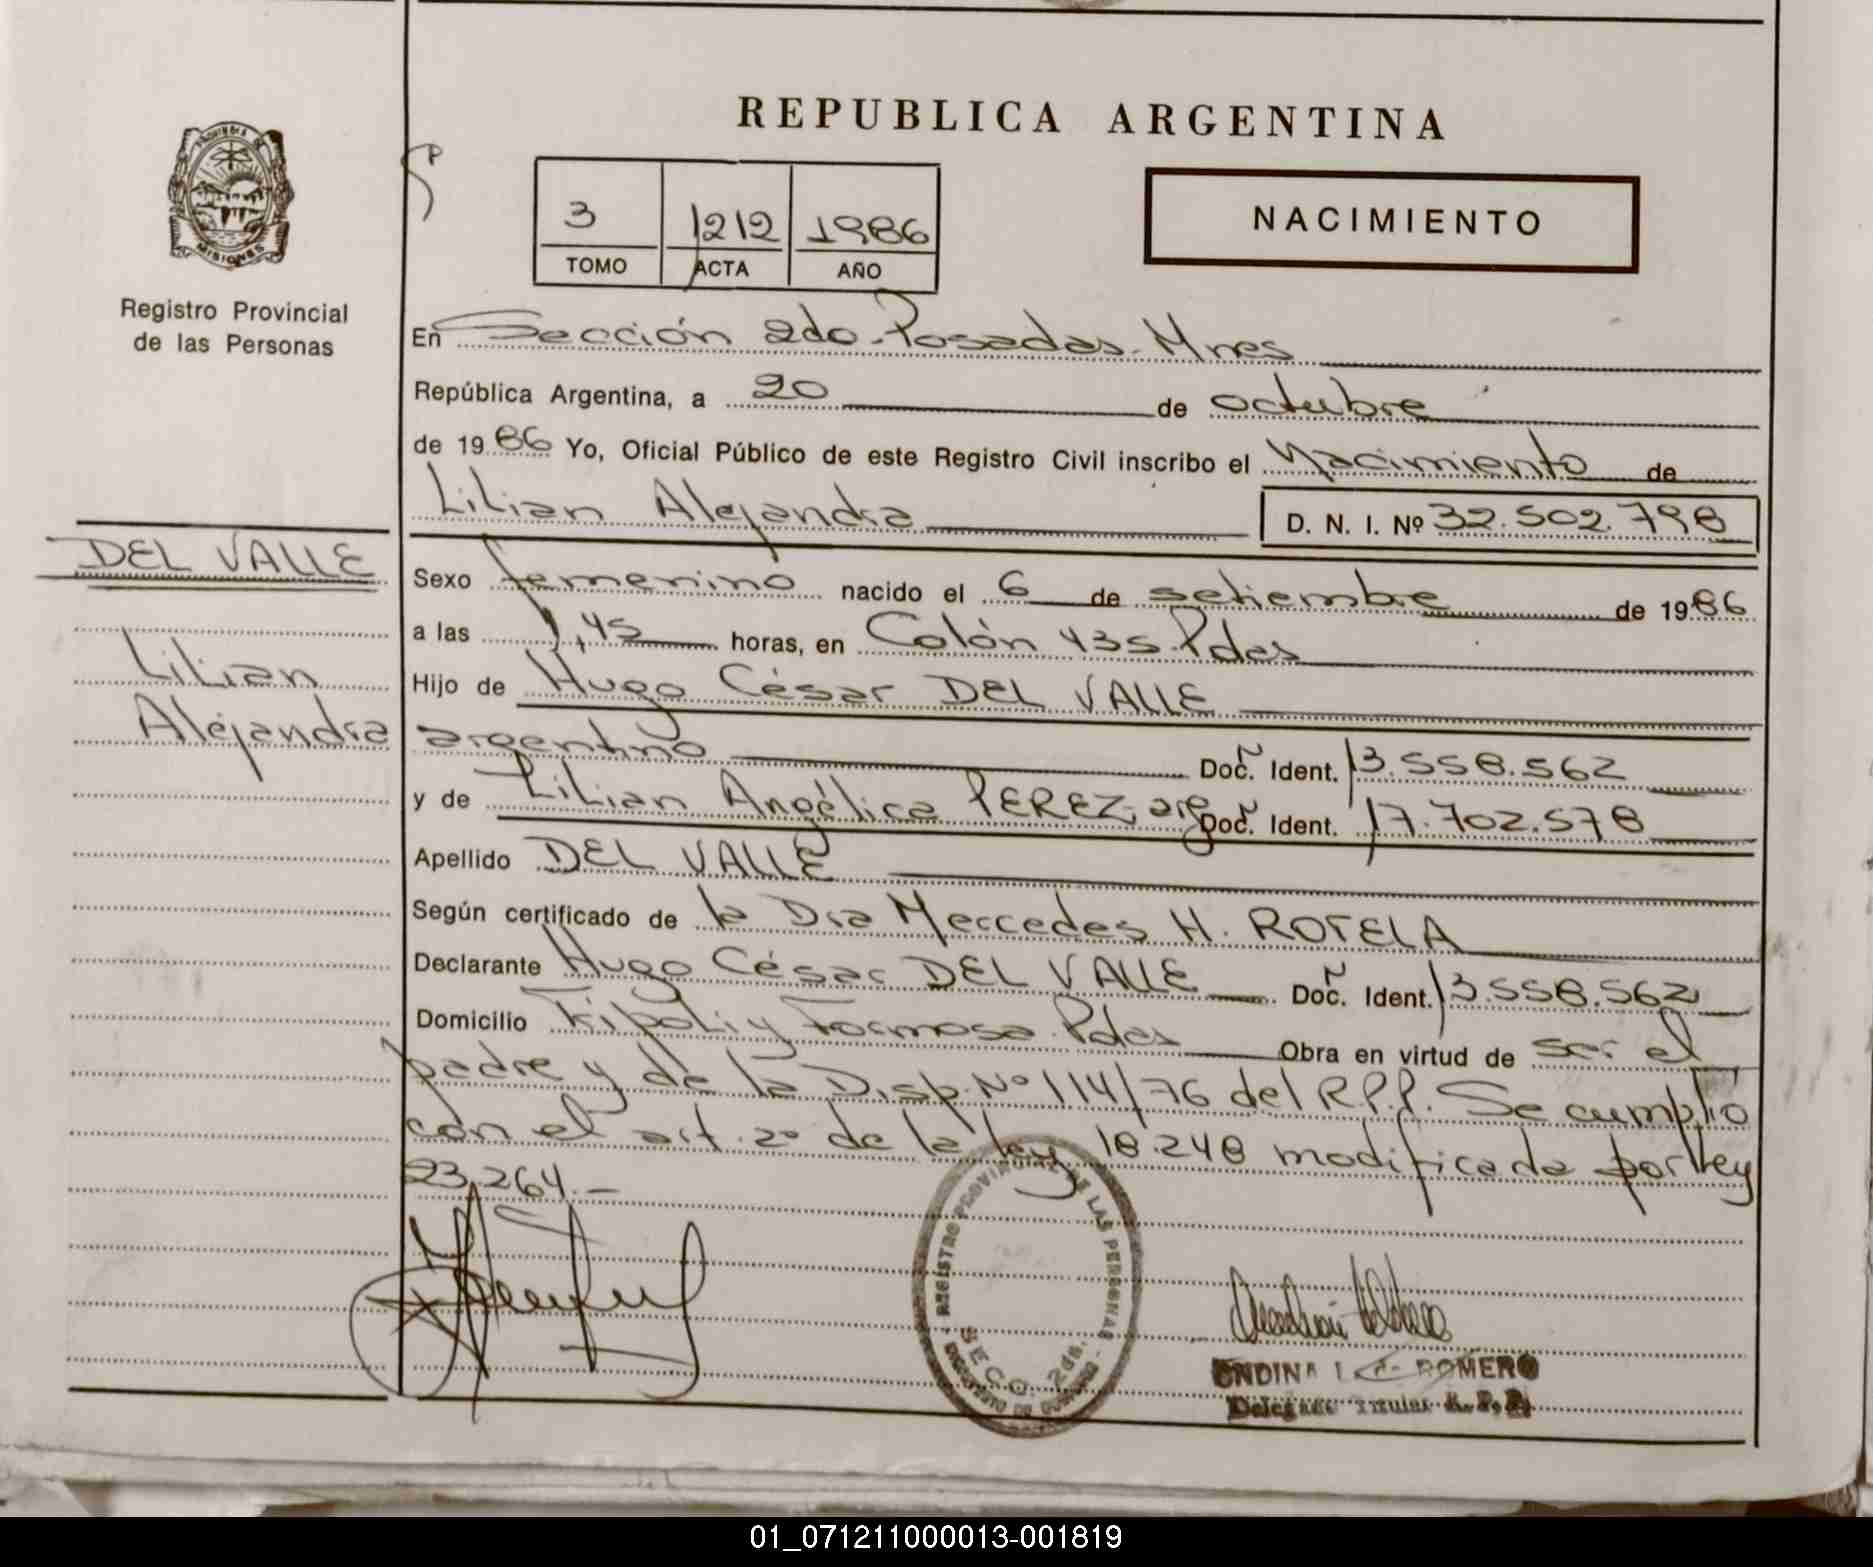 REPUBLICA ARGENTINA
PROVINCIA DE MISIONES
Registro Provincial
de las Personas
3 1212 1986
TOMO ACTA AÑO
NACIMIENTO
En Sección 2do. Posadas. Mnes
República Argentina, a 20 de octubre
de 1986 Yo, Oficial Público de este Registro Civil inscribo el Nacimiento de
Lilian Alejandra D. N. I. Nº 32.502.798
DEL VALLE
Lilian
Alejandra
Sexo femenino nacido el 6 de setiembre de 1986
a las 1,45 horas, en Colón 435. Pdas
Hijo de Hugo César DEL VALLE
argentino Doc. Ident. 13.558.562
y de Lilian Angélica PEREZ, arg Doc. Ident. 17.702.578
Apellido DEL VALLE
Según certificado de la Dra Mercedes H. ROTELA
Declarante Hugo César DEL VALLE Doc. Ident. 13.558.562
Domicilio Tripoli y Formosa. Pdas Obra en virtud de ser el
padre y de la Disp. Nº 114/76 del R.P.P. Se cumplió
con el art. 2º de la ley 18.248 modificada por ley
23.264.-
REGISTRO PROVINCIAL DE LAS PERSONAS
SECC. 2da.
ROMERO
Titular R. P. P.
01_071211000013-001819